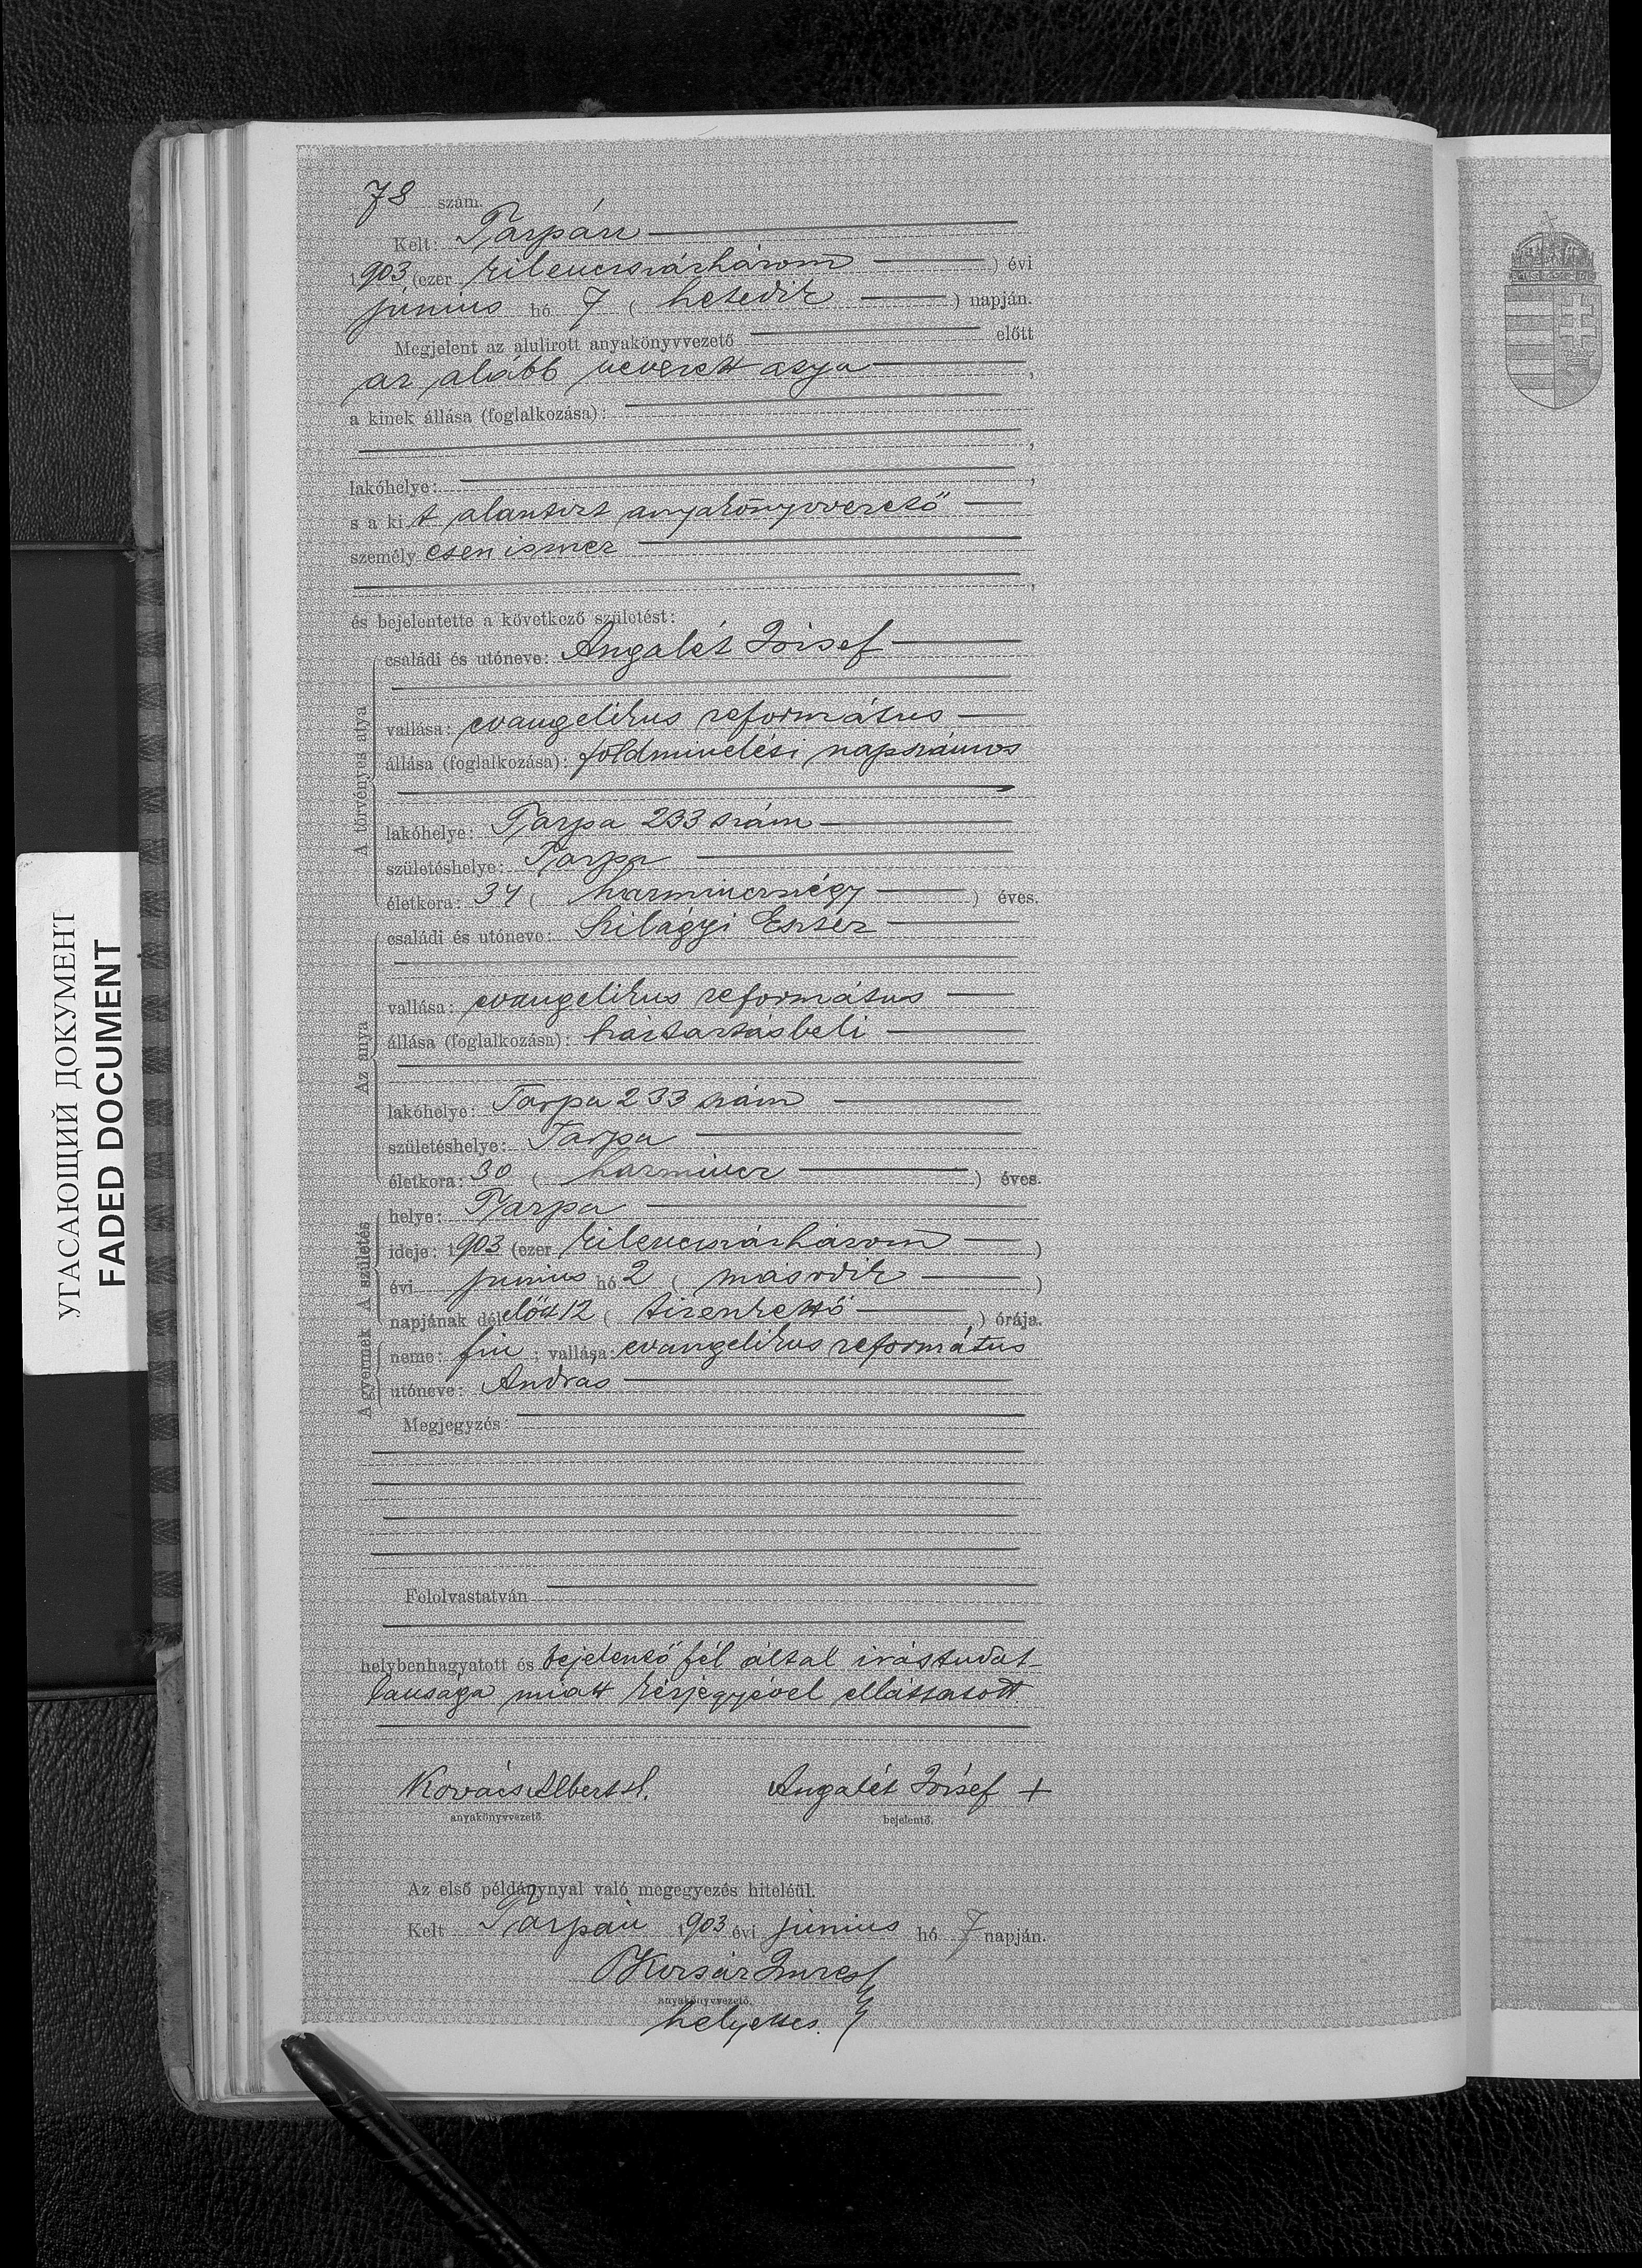 78 szám.
Kelt: Tarpán
1903 (ezer kilencszázhárom) évi
június hó 7 (hetedik) napján.
Megjelent az alulirott anyakönyvvezető előtt
az alább nevezett atya,
a kinek állása (foglalkozása):
,
lakóhelye: ,
s a kit alantirt anyakönyvvezető
személyesen ismer
,
és bejelentette a következő születést:
A törvényes atya
családi és utóneve: Angalét József
vallása: evangelikus református
állása (foglalkozása): földmivelési napszámos
lakóhelye: Tarpa 233 szám
születéshelye: Tarpa
életkora: 34 (harmincznégy) éves.
Az anya
családi és utóneve: Szilágyi Eszter
vallása: evangelikus református
állása (foglalkozása): háztartásbeli
lakóhelye: Tarpa 233 szám
születéshelye: Tarpa
életkora: 30 (harmincz) éves.
A születés
helye: Tarpa
ideje: 1903 (ezer kilencszázhárom)
évi junius hó 2 (második)
napjának délelőtt 12 (tizenkettő) órája.
A gyermek
neme: fiu; vallása: evangelikus református
utóneve: András
Megjegyzés:
Felolvastatván
helybenhagyatott és bejelentő fél által irástudat-
lansága miatt kézjegyével elláttatott
Kovács Albert H. Angalét József +
anyakönyvvezető. bejelentő.
Az első példánynyal való megegyezés hiteléül.
Kelt Tarpán 1903 évi június hó 7 napján.
Imre
anyakönyvvezető.
helyettes.
УГАСАЮЩИЙ ДОКУМЕНТ
FADED DOCUMENT